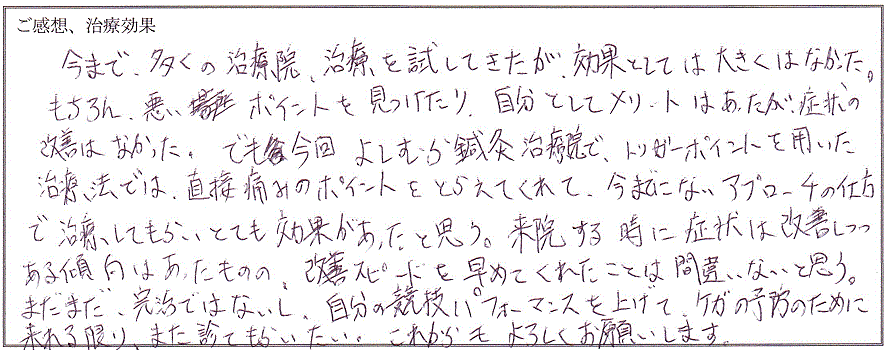 ご感想、治療効果
今まで、多くの治療院、治療を試してきたが、効果としては大きくはなかった。
もちろん、悪い場所 ポイントを見つけたり、自分としてメリットはあったが、症状の
改善はなかった。でも今回 よしむら鍼灸治療院で、トリガーポイントを用いた
治療法では、直接痛みのポイントをとらえてくれて、今までにないアプローチの仕方
で治療してもらいとても効果があったと思う。来院する時に症状は改善しつつ
ある傾向はあったものの、改善スピードを早めてくれたことは間違いないと思う。
まだまだ、完治ではないし、自分の競技パフォーマンスを上げて、ケガの予防のために
来れる限り、また診てもらいたい。これからもよろしくお願いします。